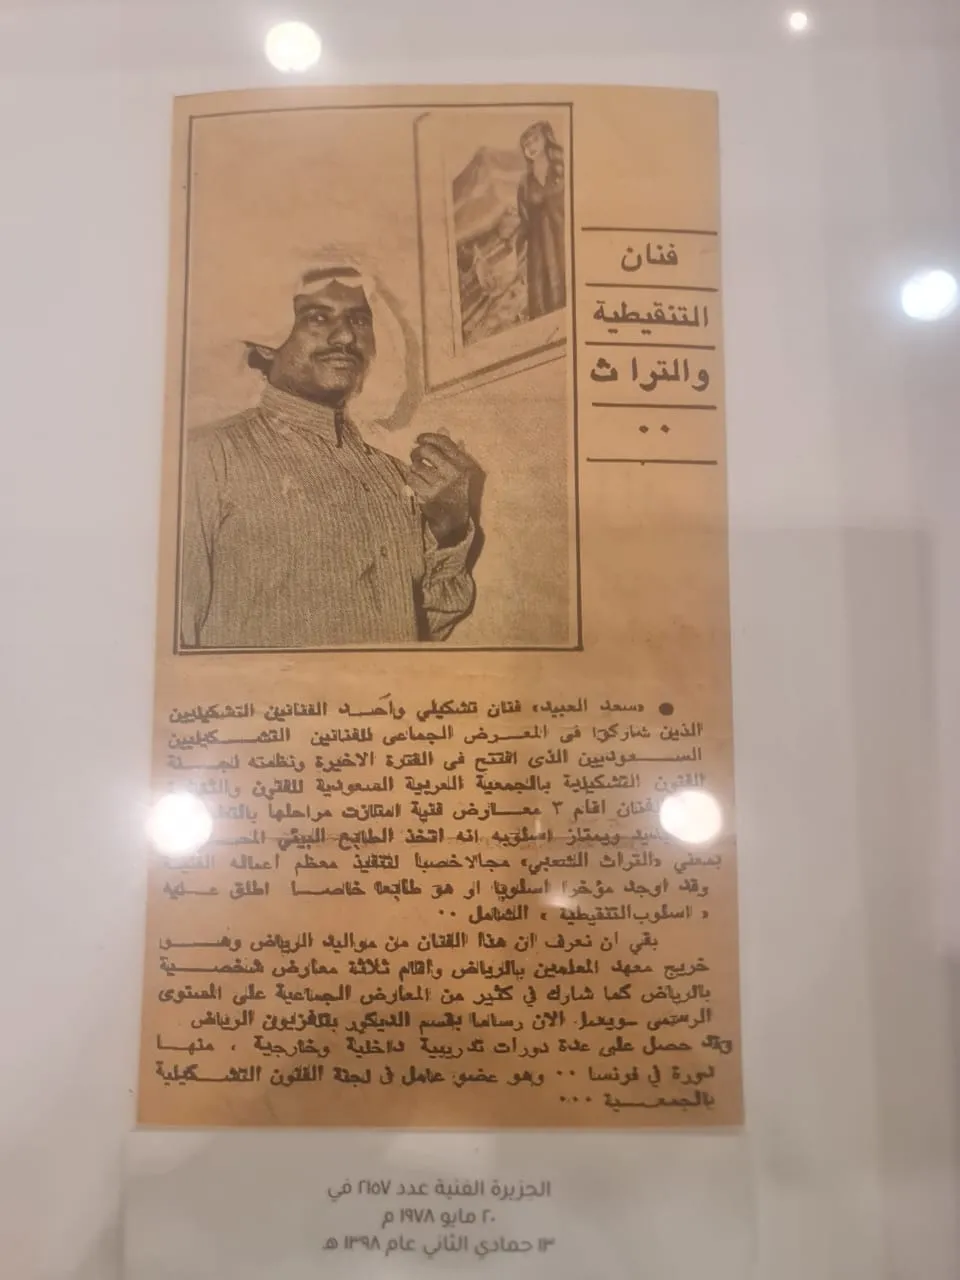 فنان
التنقيطية
والتراث
..
● «سعد العبيد» فنان تشكيلي وأحـــد الفنانين التشكيليين
الذين شاركوا في المعــرض الجماعي للفنانين التشــكيليين
الســـعوديين الذي افتتح في الفترة الاخيرة ونظمته لجـنة
الفنون التشكيلية بالجمعية العربية السعودية للفنون والثقافة
اقام ٣ معــارض فنية امتازت مراحلها
ويمتاز اسلوبه انه اتخذ الطابع البيئي
بمعنى «التراث الشعبي» مجالا خصبا لتنفيذ معظم اعماله الفنية
وقد اوجد مؤخرا اسلوبا او هو طابعا خاصــا اطلق عـــليه
« اسلوب التنقيطية » الشامل ..
بقي ان نعرف ان هذا الفنان من مواليد الرياض وهـــو
خريج معهد المعلمين بالرياض وأقام ثلاثة معارض شخصـــية
بالرياض كما شارك في كثير من المعارض الجماعية على المستوى
الرسمي .. ويعمل الان رساما بقسم الديكور بتلفزيون الرياض
وقد حصل على عدة دورات تدريبية داخلية وخارجية ، منهـــا
دورة في فرنسا .. وهو عضو عامل في لجنة الفنون التشــكيلية
بالجمعـــية ...
الجزيرة الفنية عدد ٢١٥٧ في
٢٠ مايو ١٩٧٨ م
١٣ جمادي الثاني عام ١٣٩٨ هـ